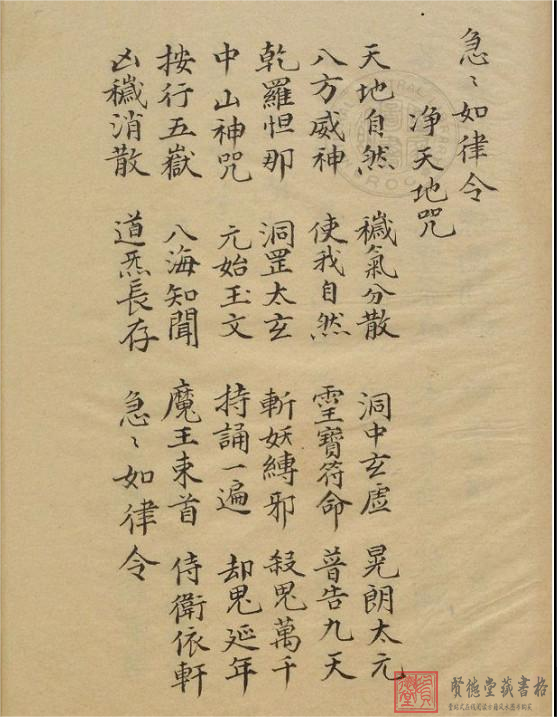 急〻如律令
净天地咒
天地自然 穢氣分散 洞中玄虛 晃朗太元
八方威神 使我自然 霊寶符命 普告九天
乾羅怛那 洞罡太玄 斬妖縛邪 殺鬼萬千
中山神咒 元始玉文 持誦一遍 却鬼延年
按行五嶽 八海知聞 魔王束首 侍衛依軒
凶穢消散 道炁長存 急〻如律令